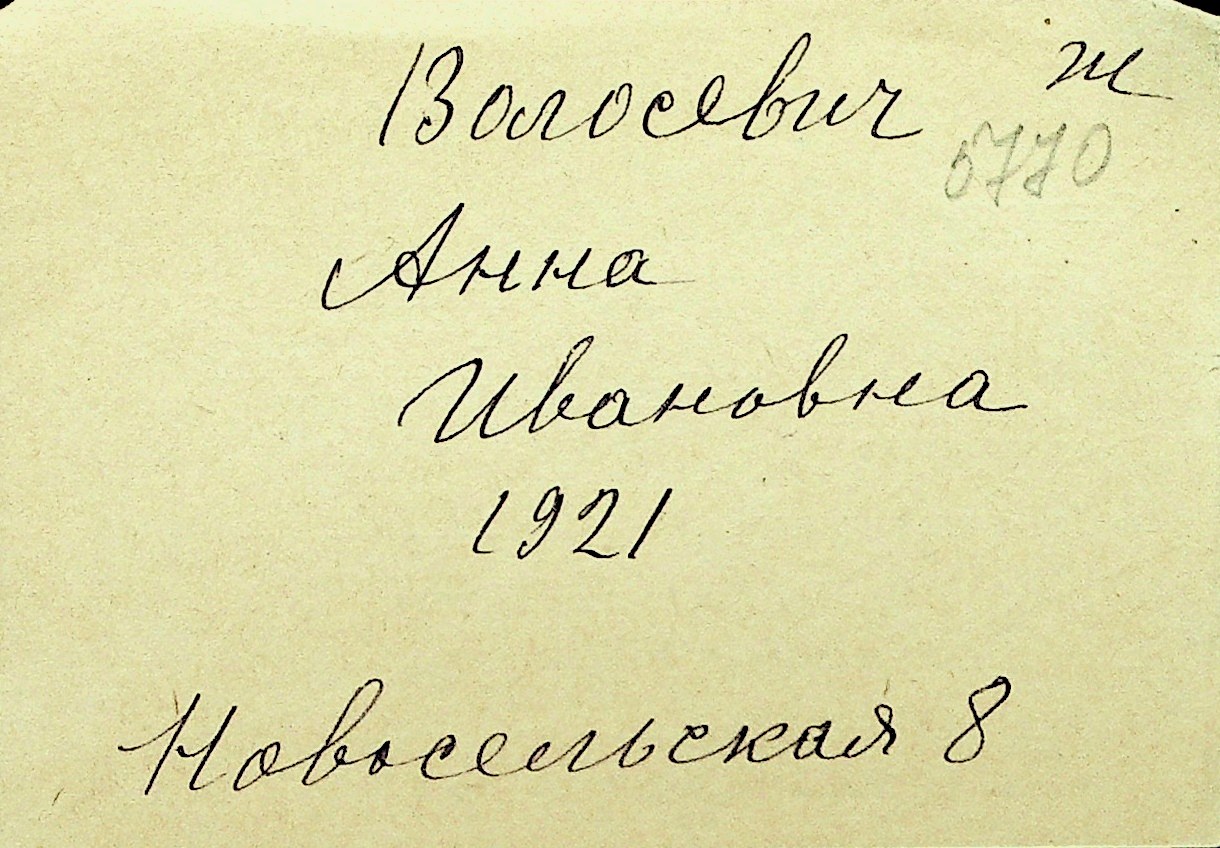 Волосевич ж
5770
Анна
Ивановна
1921
Новосельская 8